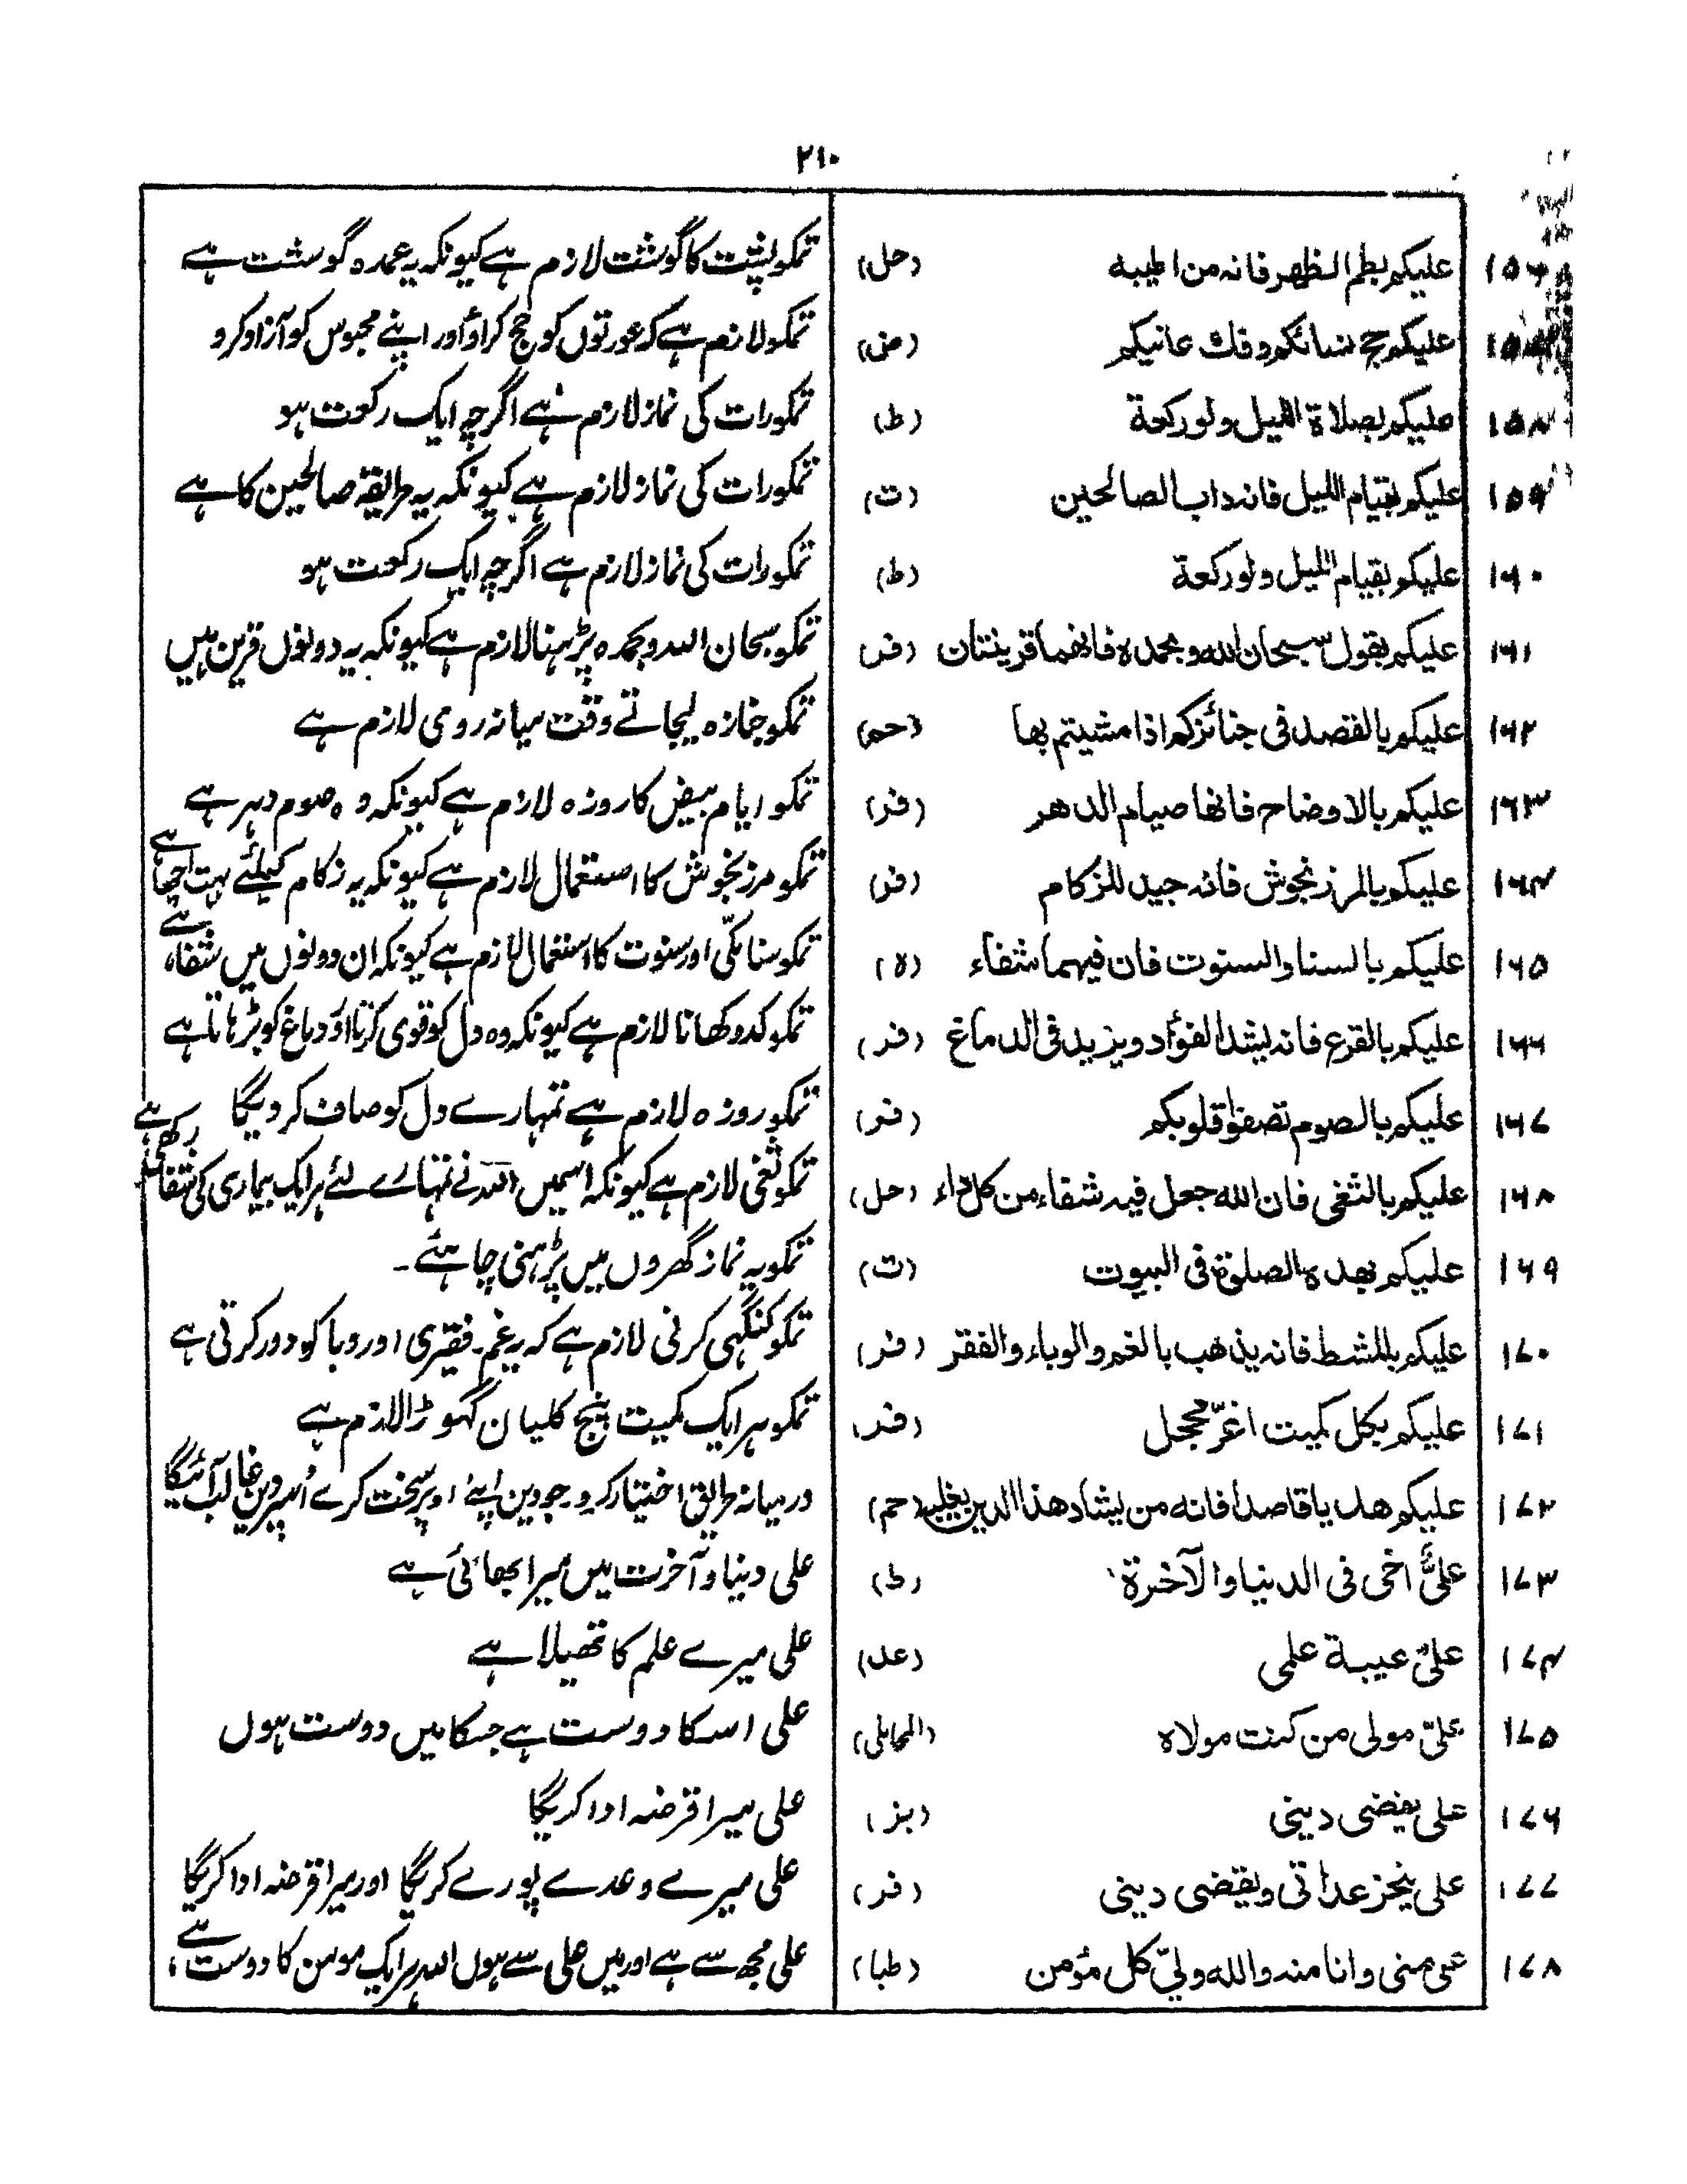 ۲۱۰
۱۵۶ علیکم بلحم الظهر فانه من اطیبه (حل) تمکو پشت کا گوشت لازم ہے کیونکہ یہ عمدہ گوشت ہے
۱۵۷ علیکم حج نسائکم وفك عانیکم (ض) تمکو لازم ہے کہ عورتوں کو حج کراؤ اور اپنے محبوس کو آزاد کرو
۱۵۸ علیکم بصلاة اللیل ولو رکعة (ط) تمکو رات کی نماز لازم ہے اگرچہ ایک رکعت ہو
۱۵۹ علیکم بقیام اللیل فانه داب الصالحین (ت) تمکو رات کی نماز لازم ہے کیونکہ یہ طریقہ صالحین کا ہے
۱۶۰ علیکم بقیام اللیل ولو رکعة (ط) تمکو رات کی نماز لازم ہے اگرچہ ایک رکعت ہو
۱۶۱ علیکم بقول سبحان الله وبحمده فانهما قرینتان (فر) تمکو سبحان اللہ وبحمدہ پڑہنا لازم ہے کیونکہ یہ دونوں قرین ہیں
۱۶۲ علیکم بالقصد فی جنائزکم اذا مشیتم بها (حم) تمکو جنازہ لیجاتے وقت میانہ روی لازم ہے
۱۶۳ علیکم بالاوضاح فانها صیام الدهر (فر) تمکو ایام بیض کا روزہ لازم ہے کیونکہ وہ صوم دہر ہے
۱۶۴ علیکم بالمرزنجوش فانه جید للزکام (فر) تمکو مرزنجوش کا استعمال لازم ہے کیونکہ یہ زکام کیلئے بہت اچھا ہے
۱۶۵ علیکم بالسنا والسنوت فان فیهما شفاء (ہ) تمکو سنا مکّی اور سنوت کا استعمال لازم ہے کیونکہ ان دونوں میں شفاء ہے
۱۶۶ علیکم بالقرع فانه یشد الفؤاد ویزید فی الدماغ (فر) تمکو کدو کھانا لازم ہے کیونکہ وہ دل کو قوی کرتا اور دماغ کو بڑہاتا ہے
۱۶۷ علیکم بالصوم تصفوا قلوبکم (فر) تمکو روزہ لازم ہے تمہارے دل کو صاف کر دیگا
۱۶۸ علیکم بالثغی فان الله جعل فیه شفاء من کل داء (حل) تمکو ثغی لازم ہے کیونکہ اسمیں اللہ نے تمہارے لئے ہر ایک بیماری کی شفا رکھی ہے
۱۶۹ علیکم بهذه الصلوة فی البیوت (ت) تمکو یہ نماز گھروں میں پڑہنی چاہئے۔
۱۷۰ علیکم بالمشط فانه یذهب بالغم والوباء والفقر (فر) تمکو کنگھی کرنی لازم ہے کہ یہ غم۔ فقیری اور وبا کو دور کرتی ہے
۱۷۱ علیکم بکل کمیت اغرّ محجل (فر) تمکو ہر ایک کمیت پنج کلیان گہوڑا لازم ہے
۱۷۲ علیکم هدیا قاصدا فانه من یشاد هذا الدین یغلبه (حم) درمیانہ طریق اختیار کرو۔ جو دین اپنے اوپر سخت کرے اُسپر دین غالب آئیگا
۱۷۳ علیٌّ اخی فی الدنیا والآخرة (ط) علی دنیا و آخرت میں میرا بھائی ہے
۱۷۴ علیّ عیبة علمی (عد) علی میرے علم کا تھیلا ہے
۱۷۵ علیّ مولی من کنت مولاه (المحاملی) علی اسکا دوست ہے جسکا میں دوست ہوں
۱۷۶ علی یقضی دینی (بز) علی میرا قرضہ ادا کریگا
۱۷۷ علی ینجز عداتی ویقضی دینی (فر) علی میرے وعدے پورے کریگا اور میرا قرضہ ادا کریگا
۱۷۸ علی منی وانا منه والله ولیّ کل مؤمن (طبا) علی مجھ سے ہے اور میں علی سے ہوں اللہ ہر ایک مومن کا دوست ہے،